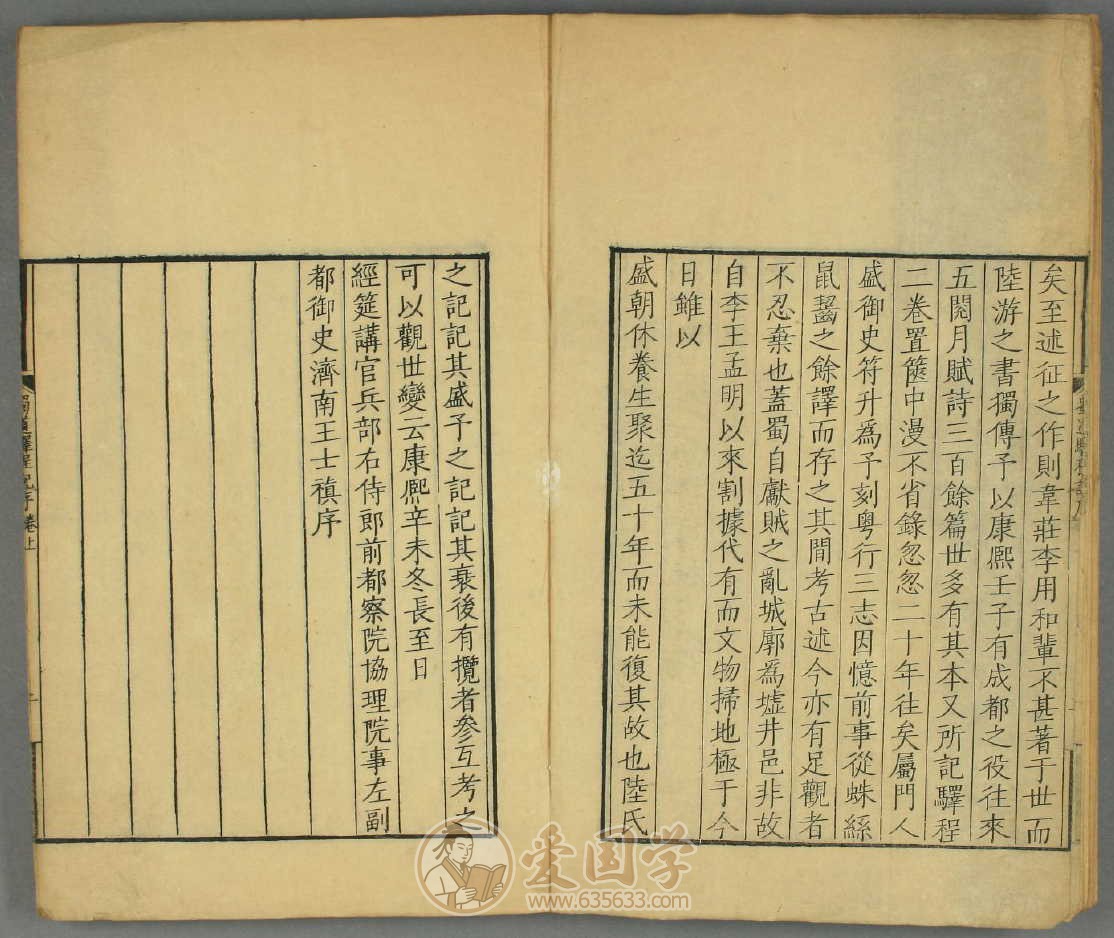 矣至述征之作則韋莊李用和輩不甚著于世而
陸游之書獨傳予以康熙壬子有成都之役往來
五閱月賦詩三百餘篇世多有其本又所記驛程
二卷置篋中漫不省錄忽忽二十年往矣屬門人
盛御史符升為予刻粤行三志因憶前事從蛛絲
鼠齧之餘譯而存之其間考古述今亦有足觀者
不忍棄也蓋蜀自獻賊之亂城廓為墟井邑非故
自李王孟明以來割據代有而文物掃地極于今
日雖以
盛朝休養生聚迄五十年而未能復其故也陸氏
之記記其盛予之記記其衰後有攬者參互考之
可以觀世變云康熙辛未冬長至日
經筵講官兵部右侍郎前都察院協理院事左副
都御史濟南王士禛序
蜀道驛程記序 卷上
爱国学
www.635633.com